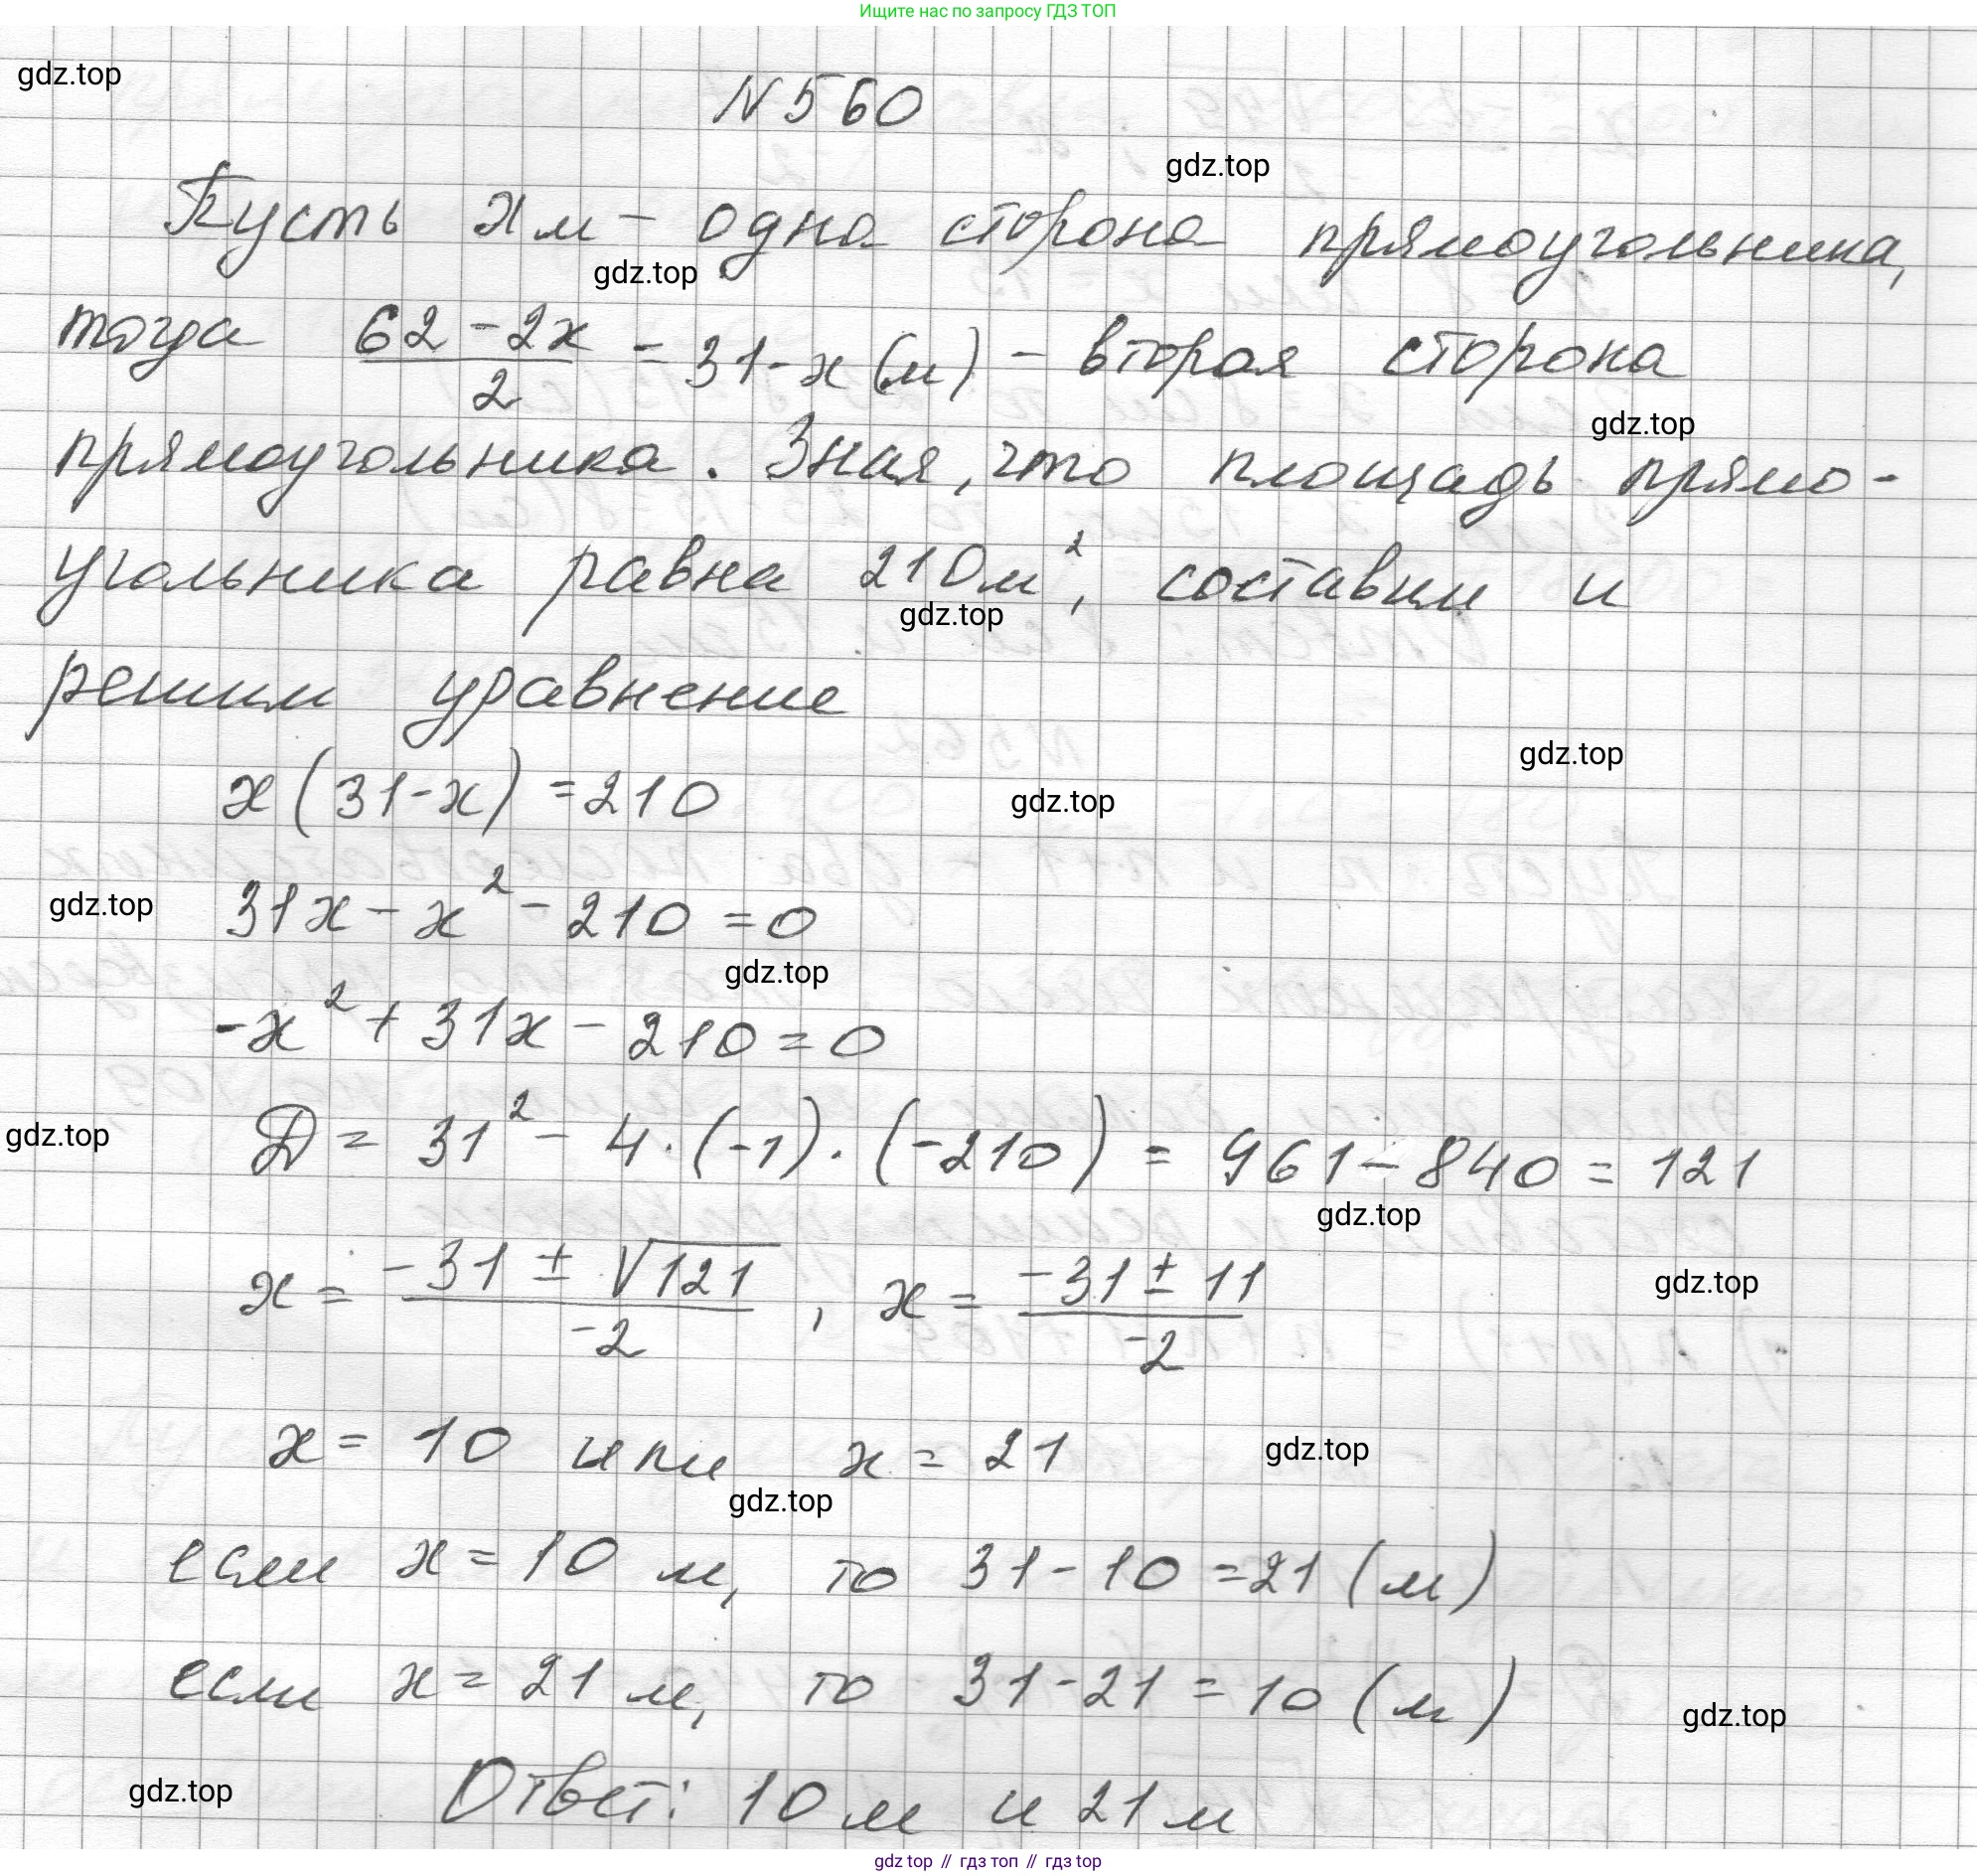 Ищите нас по запросу ГДЗ ТОП
gdz.top
N 560
gdz.top
Пусть x м – одна сторона прямоугольника,
gdz.top
тогда (62 - 2x)/2 = 31 - x (м) – вторая сторона
gdz.top
прямоугольника. Зная, что площадь прямо-
угольника равна 210 м², составим и
gdz.top
решим уравнение
gdz.top
x(31-x) = 210
gdz.top
gdz.top
31x - x² - 210 = 0
gdz.top
-x² + 31x - 210 = 0
gdz.top
D = 31² - 4·(-1)·(-210) = 961 - 840 = 121
gdz.top
x = (-31 ± √121)/(-2), x = (-31 ± 11)/(-2)
gdz.top
x = 10 или x = 21
gdz.top
gdz.top
если x = 10 м, то 31 - 10 = 21 (м)
если x = 21 м, то 31 - 21 = 10 (м)
gdz.top
gdz.top
Ответ: 10 м и 21 м
gdz top // гдз топ // гдз top